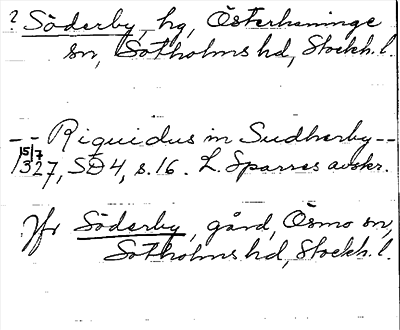 ? Söderby, hg, Österhaninge
sn, Sotholms hd, Stockh. l.
-- Riquidus in Sudherby --
15/7 1327, SD 4, s. 16. L. Sparres avskr.
Jfr Söderby, gård, Ösmo sn,
Sotholms hd, Stockh. l.